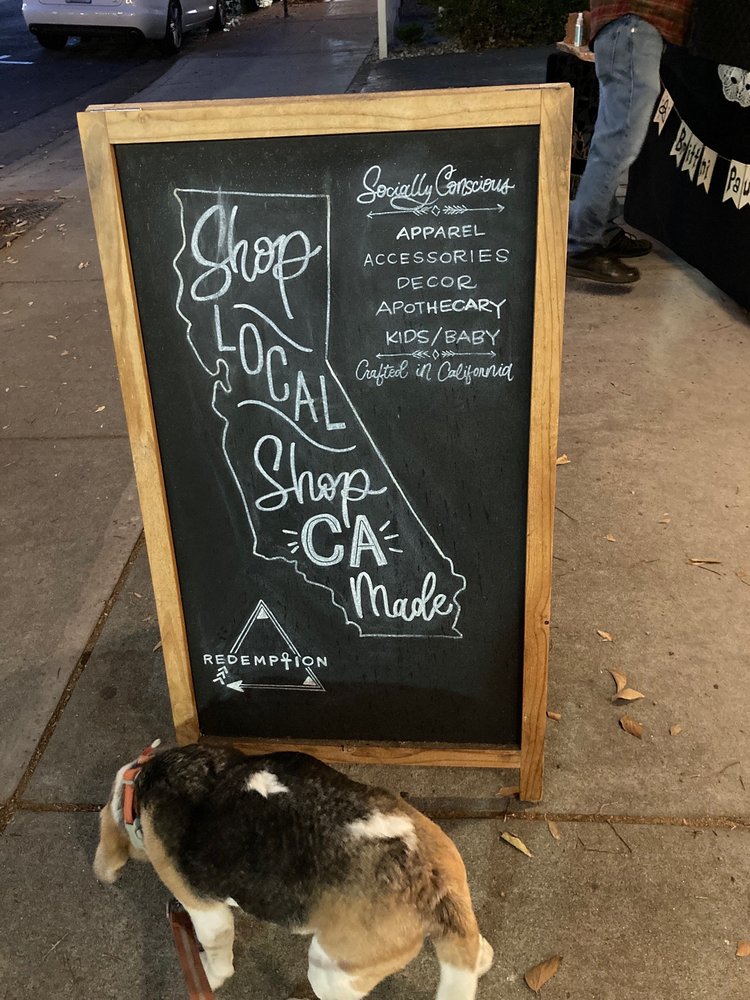 Shop
LOCAL
Shop
CA
Made
Socially Conscious
APPAREL
ACCESSORIES
DECOR
APOTHECARY
KIDS/BABY
Crafted in California
REDEMPTION